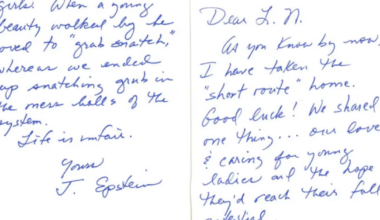 girls. When a young
beauty walked by he
loved to "grab snatch,"
whereas we ended
up snatching grub in
the mess halls of the
system.
Life is unfair.
Yours
J. Epstein
Dear L. N.
As you know by now,
I have taken the
"short route" home.
Good luck! We shared
one thing... our love
& caring for young
ladies and the hope
they'd reach their full